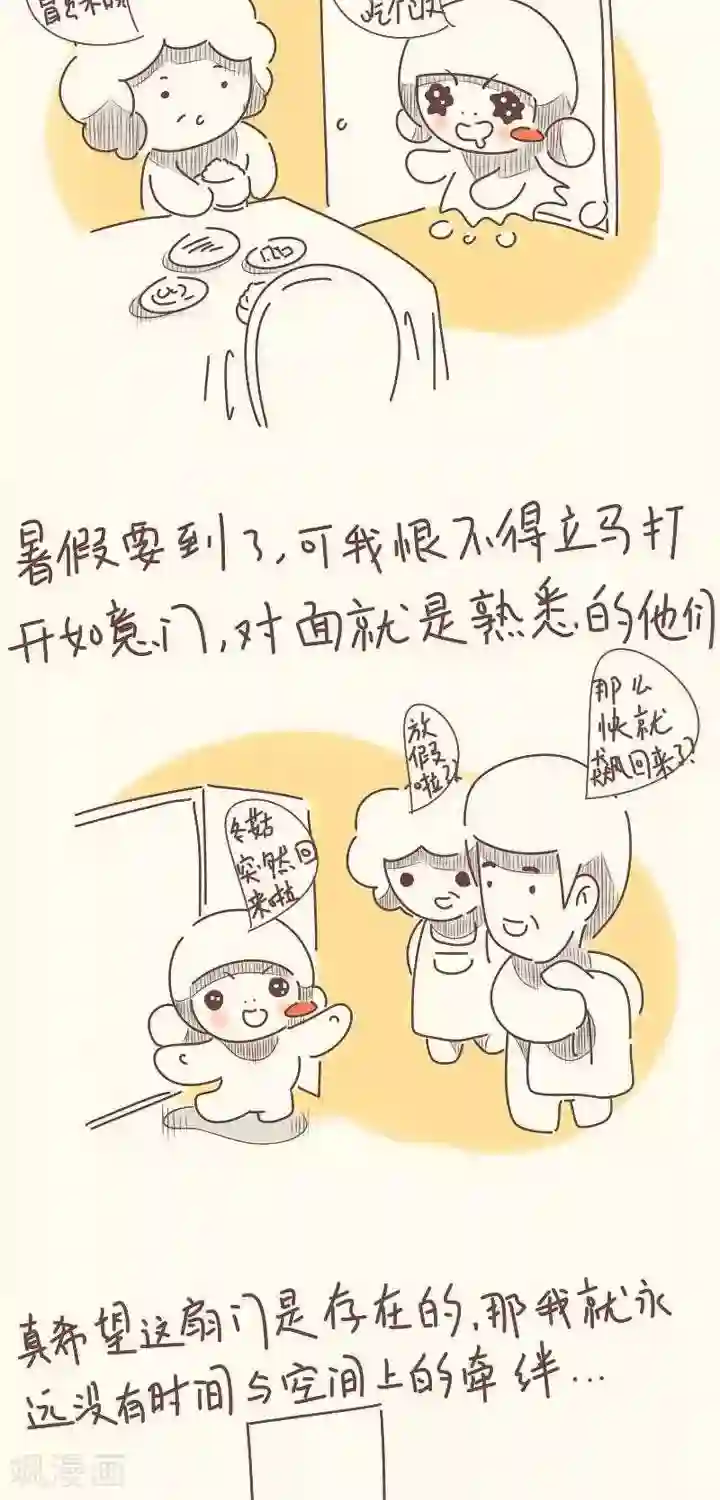 吃个饭
暑假要到了,可我恨不得立马打
开如意门,对面就是熟悉的他们
那么
快就
飙回来了?
放
假
啦??
冬菇
突然回
来啦
真希望这扇门是存在的,那我就永
远没有时间与空间上的牵绊...
飒漫画